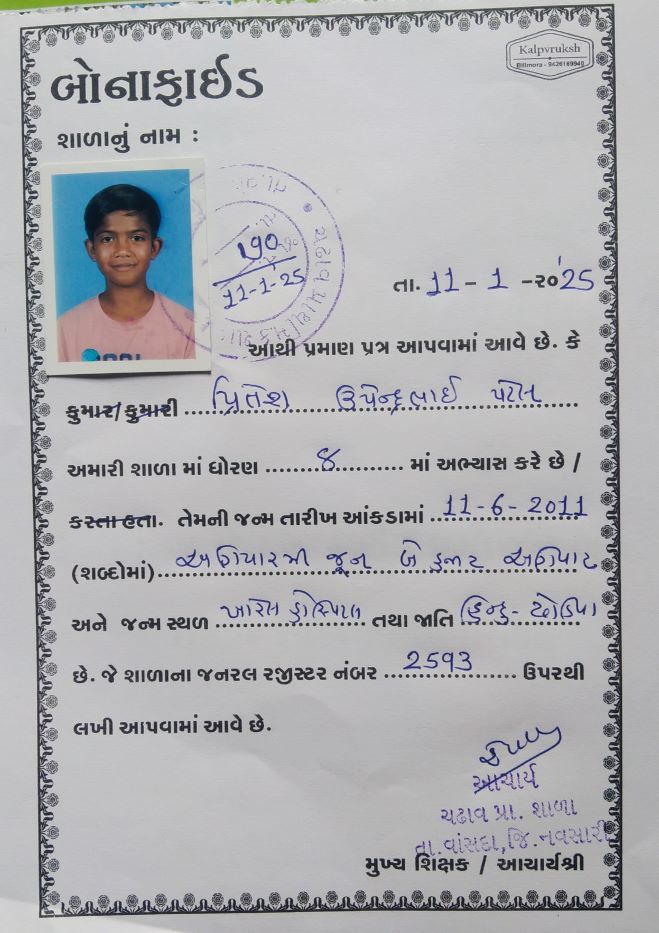 Kalpvruksh
Billimora - 9426189940
બોનાફાઈડ
શાળાનું નામ :
190
11-1-25
તા. 11 - 1 -૨૦'25
આથી પ્રમાણ પત્ર આપવામાં આવે છે. કે
કુમાર/કુમારી પ્રિતેશ ઉપેન્દ્રભાઈ પટેલ
અમારી શાળા માં ધોરણ ૪ માં અભ્યાસ કરે છે /
કરતા હતા. તેમની જન્મ તારીખ આંકડામાં 11-6-2011
(શબ્દોમાં) અગિયારમી જૂન બે હજાર અગિયાર
અને જન્મ સ્થળ ખારેલ હોસ્પિટલ તથા જાતિ હિન્દુ - ઢોડિયા
છે. જે શાળાના જનરલ રજીસ્ટર નંબર 2593 ઉપરથી
લખી આપવામાં આવે છે.
આચાર્ય
ચઢાવ પ્રા. શાળા
તા.વાંસદા,જિ.નવસારી
મુખ્ય શિક્ષક / આચાર્યશ્રી